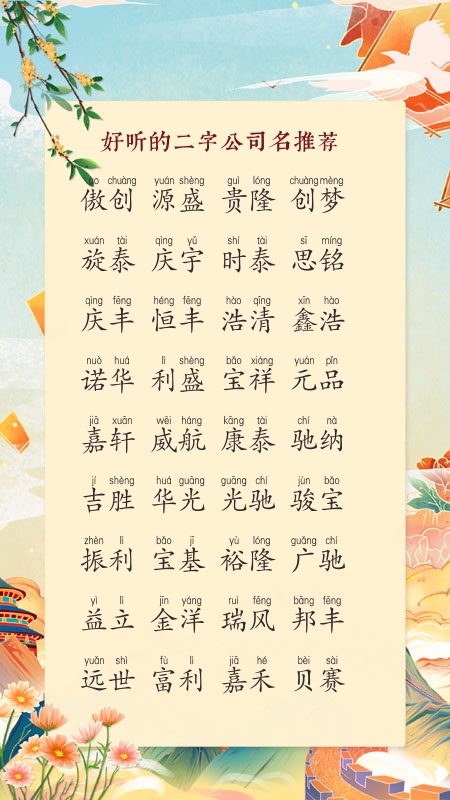 好听的二字公司名推荐
ào chuàng yuán shèng guì lóng chuàng mèng
傲创 源盛 贵隆 创梦
xuán tài qìng yǔ shí tài sī míng
旋泰 庆宇 时泰 思铭
qìng fēng héng fēng hào qīng xīn hào
庆丰 恒丰 浩清 鑫浩
nuò huá lì shèng bǎo xiáng yuán pǐn
诺华 利盛 宝祥 元品
jiā xuān wēi háng kāng tài chí nà
嘉轩 威航 康泰 驰纳
jí shèng huá guāng guāng chí jùn bǎo
吉胜 华光 光驰 骏宝
zhèn lì bǎo jī yù lóng guǎng chí
振利 宝基 裕隆 广驰
yì lì jīn yáng ruì fēng bāng fēng
益立 金洋 瑞风 邦丰
yuǎn shì fù lì jiā hé bèi sài
远世 富利 嘉禾 贝赛